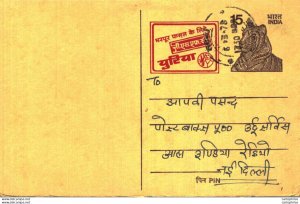 भरपूर फसल के लिये
यूरिया
15
भारत
INDIA
To
आपकी पसन्द
पोस्ट बाक्स ५०० उर्दू सर्विस
आल इण्डिया रेडियो
नई दिल्ली
पिन PIN